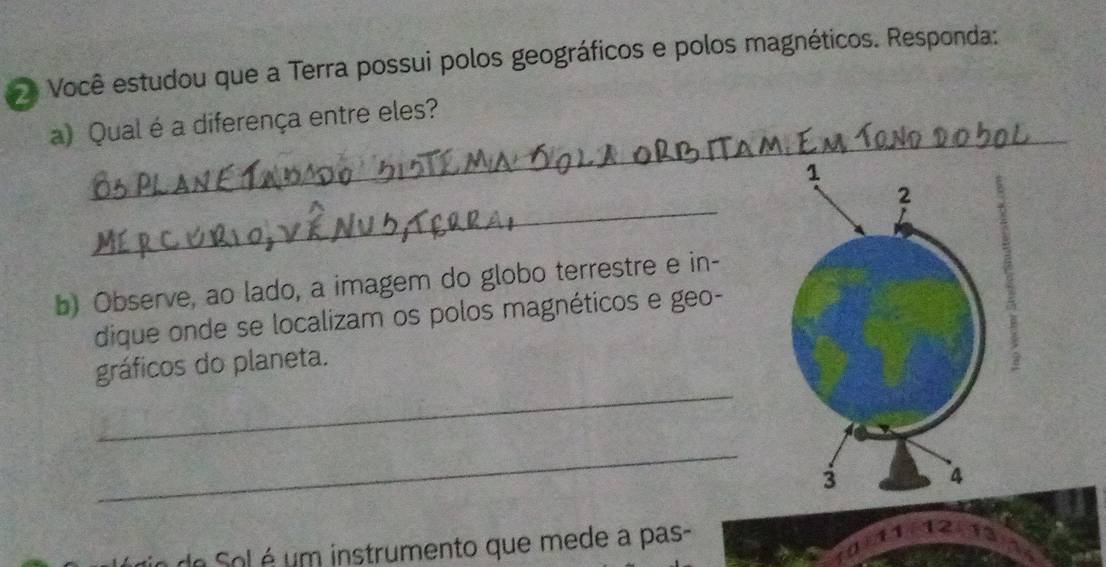 2 Você estudou que a Terra possui polos geográficos e polos magnéticos. Responda:
a) Qual é a diferença entre eles?
OS PLANETAS DO SISTEMA SOLA ORBITAM EM TONO DO SOL
MERCÚRIO, VÊNUS, TERRA,
1
2
b) Observe, ao lado, a imagem do globo terrestre e in-
dique onde se localizam os polos magnéticos e geo-
gráficos do planeta.
3
4
de Sol é um instrumento que mede a pas-
11 12 13